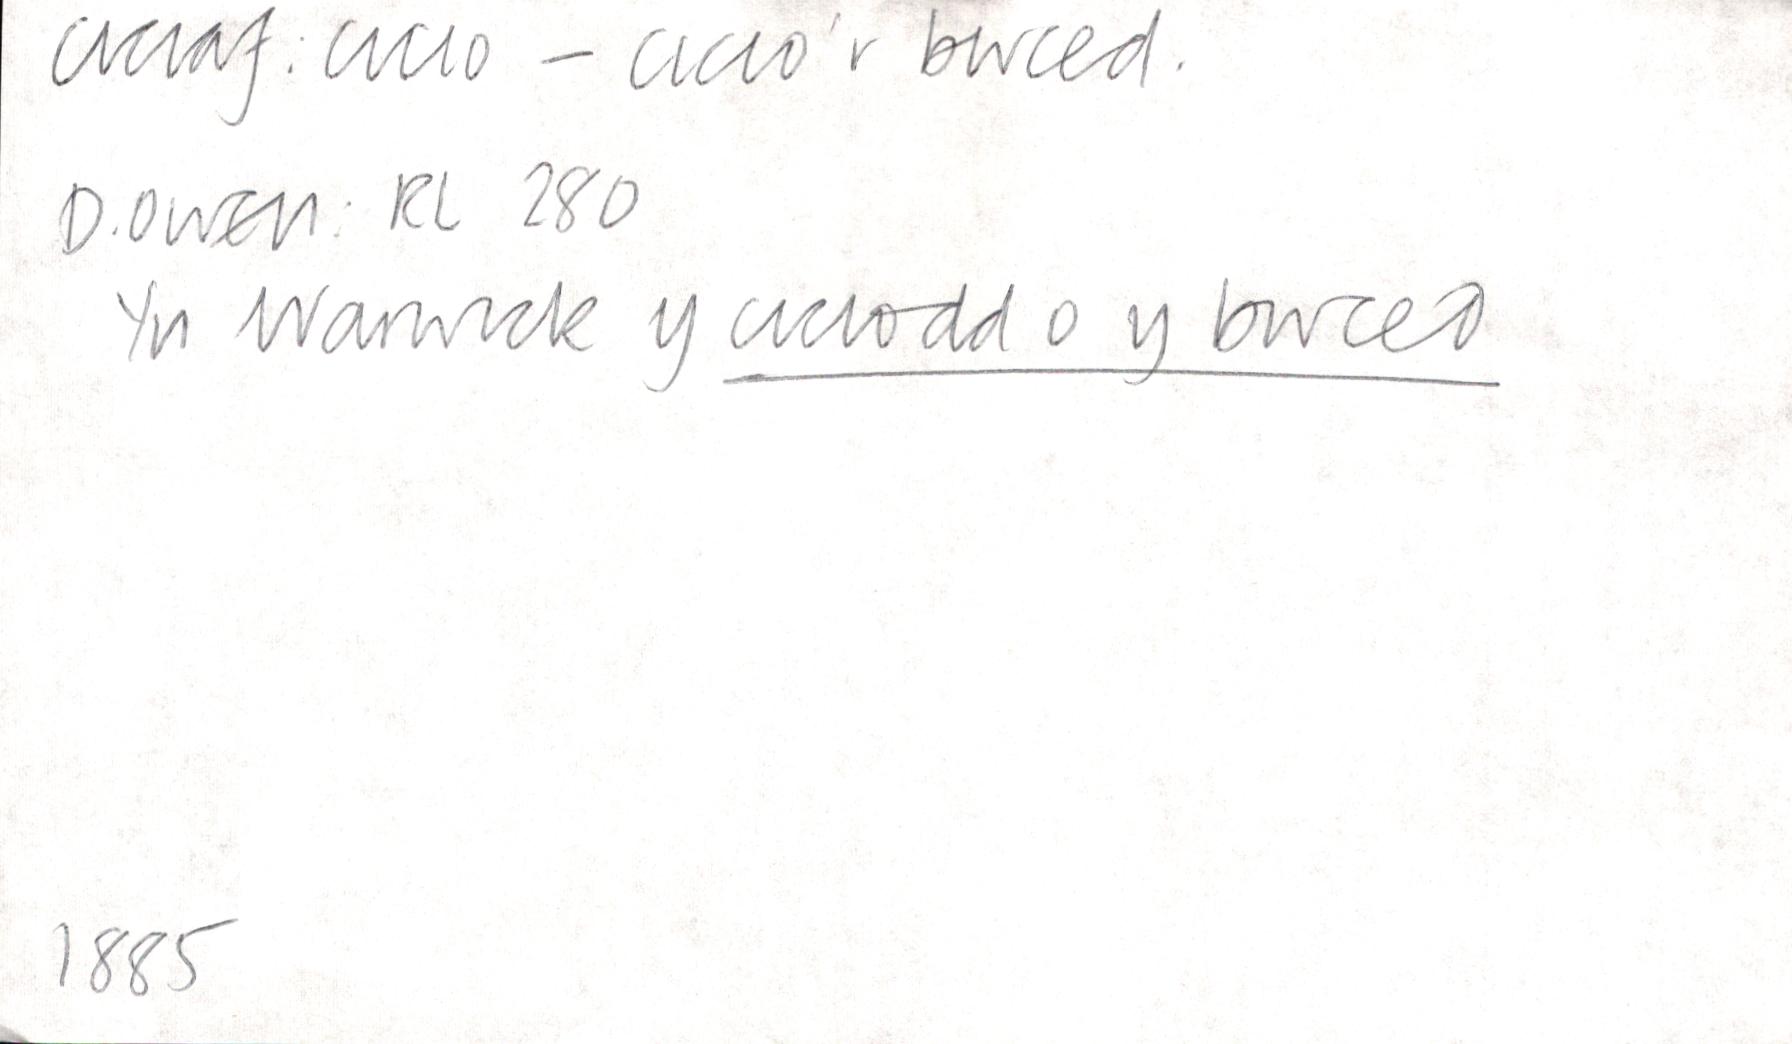 ciciaf: cicio – cicio'r bwced.
D. Owen: RL 280
Yn Warwick y ciciodd o y bwced
1885